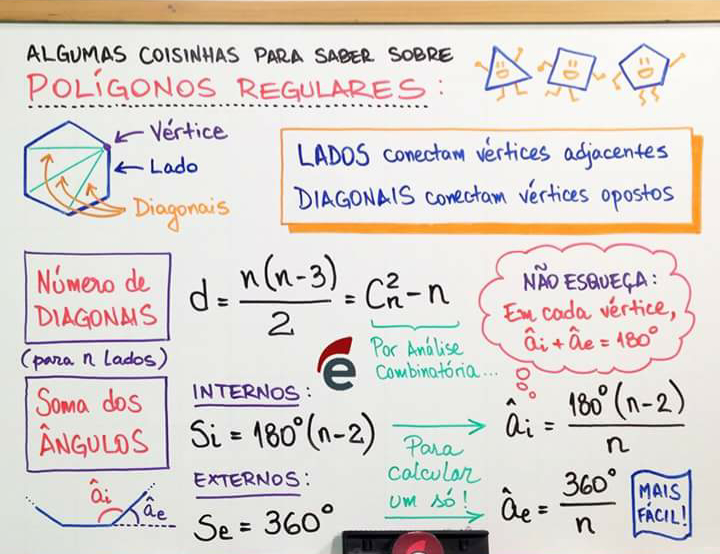 ALGUMAS COISINHAS PARA SABER SOBRE
POLÍGONOS REGULARES:
Vértice
Lado
Diagonais
LADOS conectam vértices adjacentes
DIAGONAIS conectam vértices opostos
Número de
DIAGONAIS
(para n lados)
d = n(n-3)/2 = C²ₙ - n
Por Análise
Combinatória...
NÃO ESQUEÇA:
Em cada vértice,
âi + âe = 180°
e
Soma dos
ÂNGULOS
INTERNOS:
Si = 180°(n-2)
Para
calcular
um só!
âi = 180°(n-2)/n
EXTERNOS:
Se = 360°
âe = 360°/n
MAIS
FÁCIL!
âi
âe